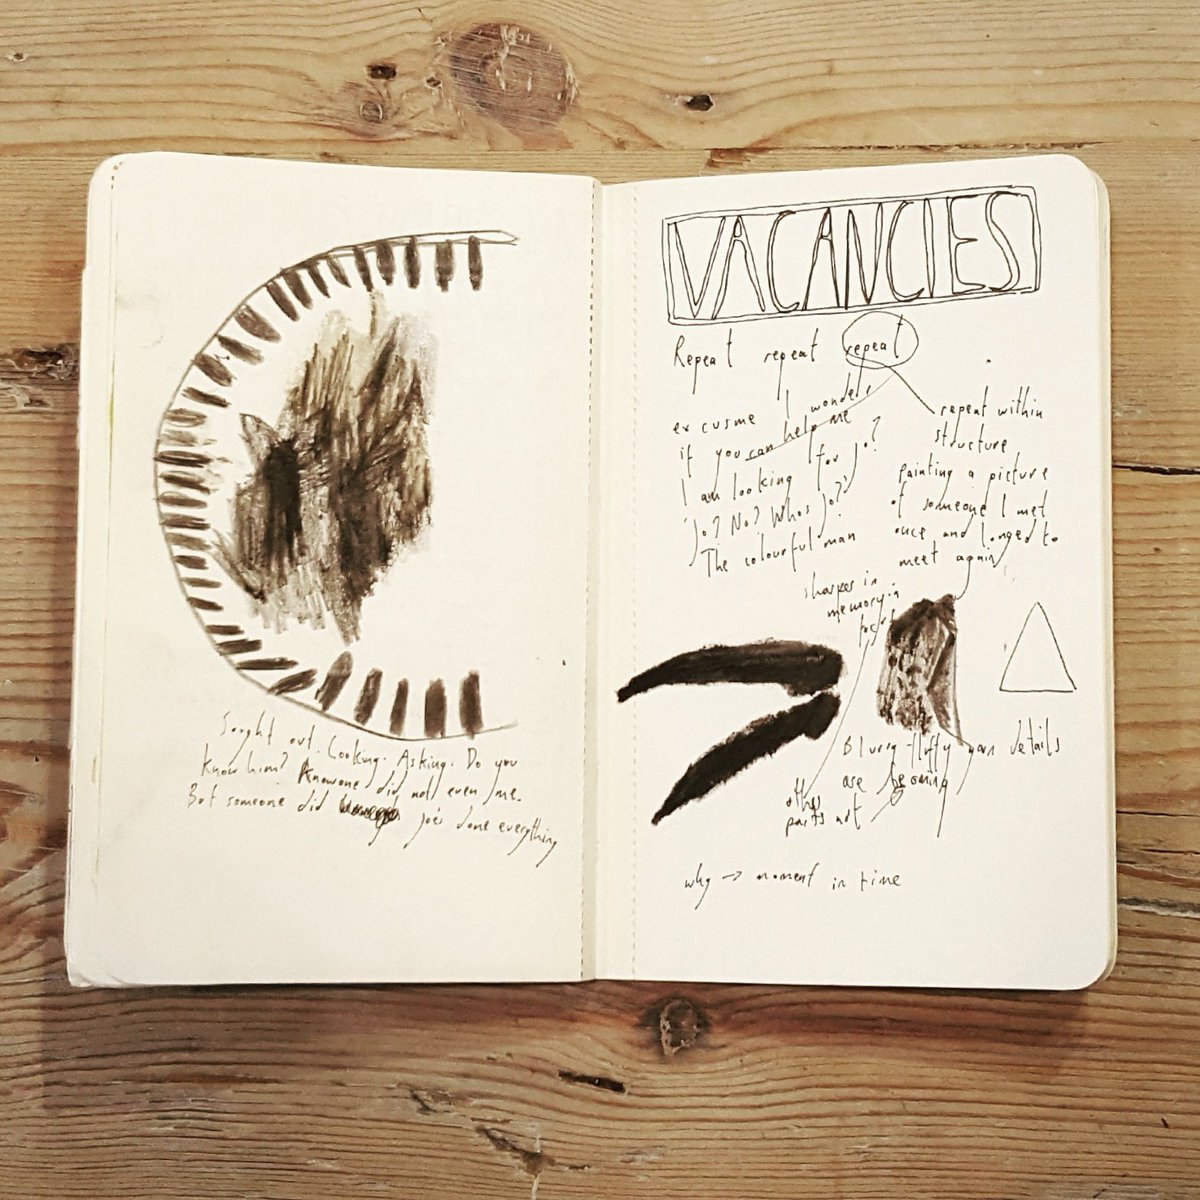 Sought out. Looking. Asking. Do you
know him? Knowone did not even me.
But someone did joe's done everything
VACANCIES
Repeat repeat repeat
excusme I wonder
if you can help me
I am looking for Jo?
'Jo? No? Whos Jo?'
The colourful man
repeat within
structure
painting a picture
of someone I met
once and longed to
meet again
sharper in
memory in
Blurry fluffy details
are
other
parts not
why → moment in time